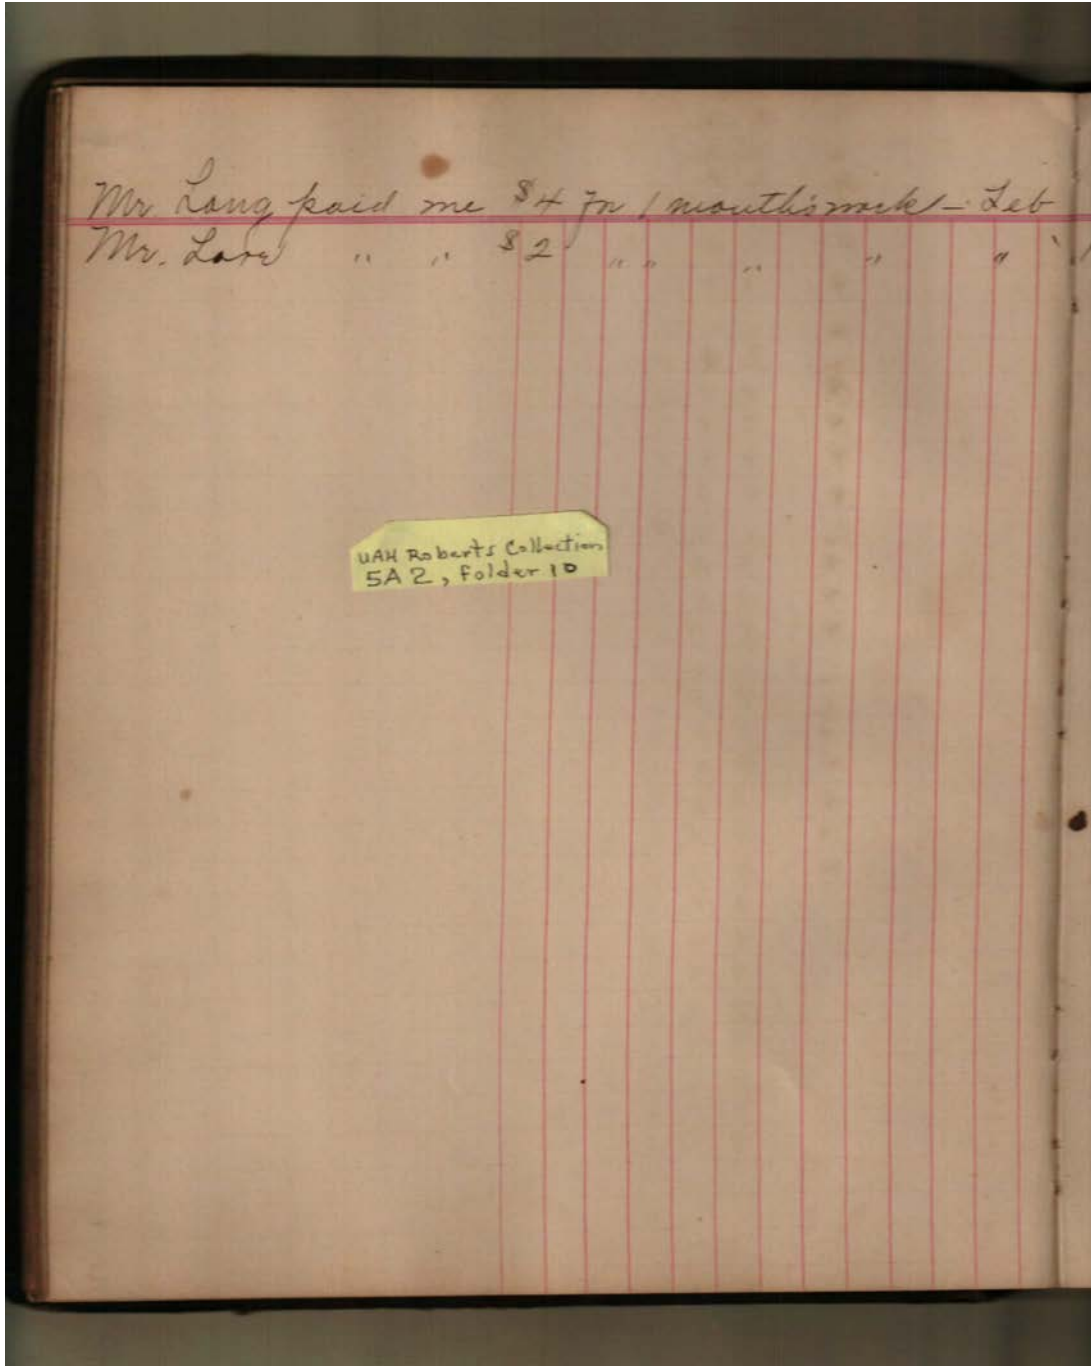 Mr. Long paid me $4 for 1 month's work – Feb
Mr. Love " " $2 " " " " " "
UAH Roberts Collection
5A2, Folder 10